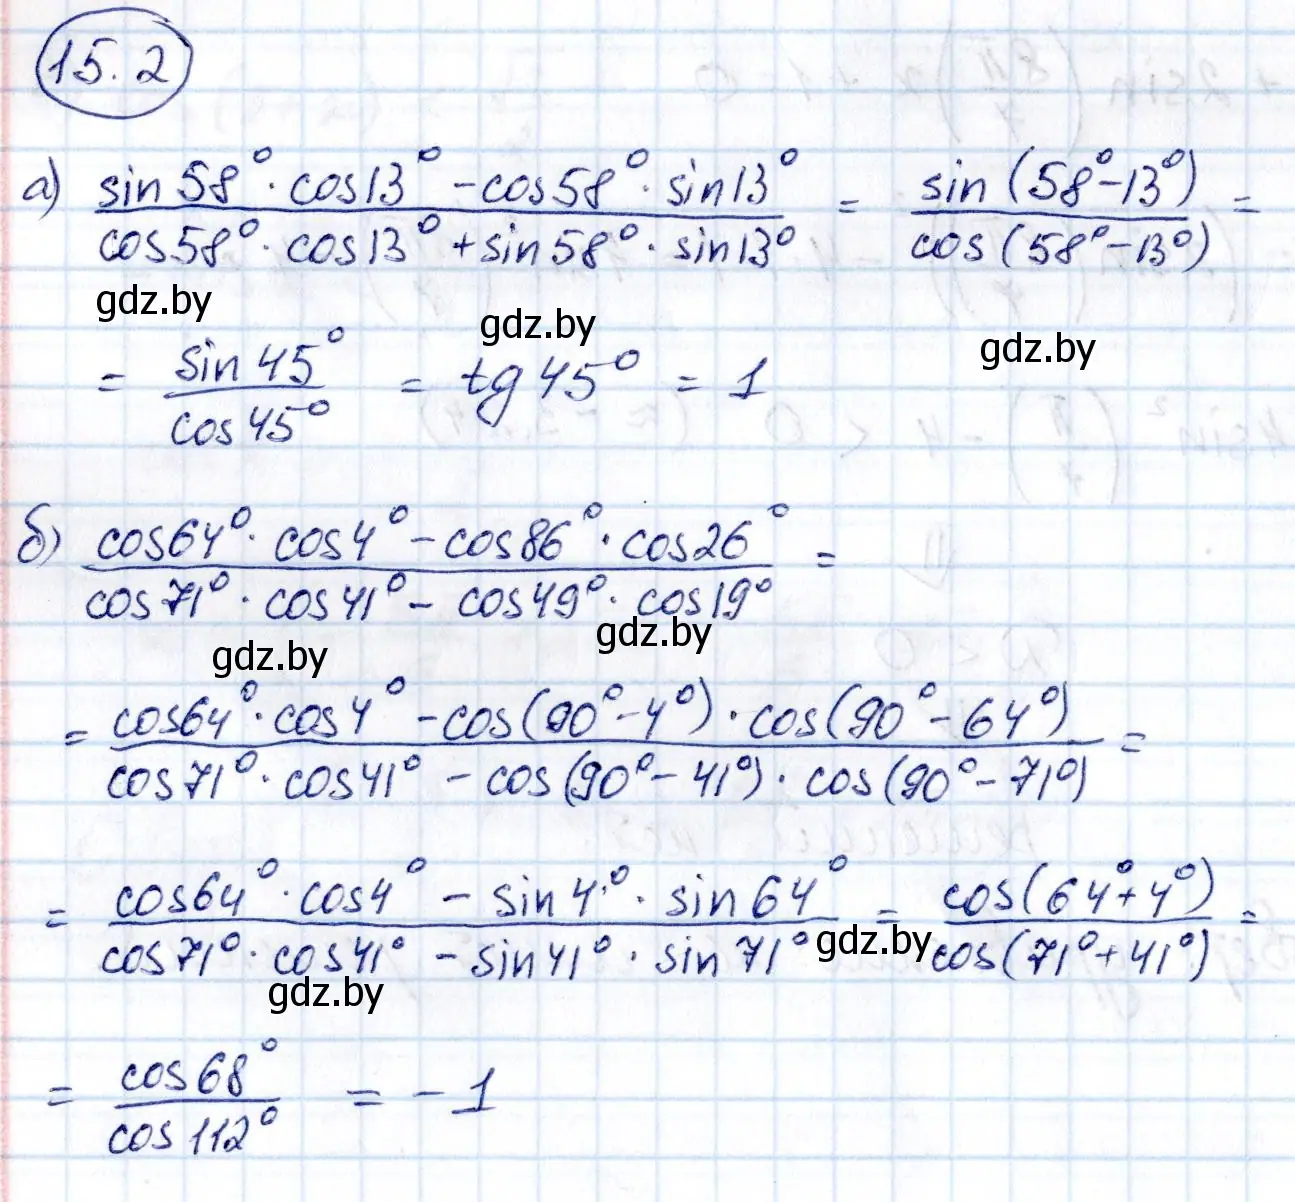 15.2
а) (sin58° · cos13° - cos58° · sin13°) / (cos58° · cos13° + sin58° · sin13°) = sin(58° - 13°) / cos(58° - 13°) =
gdz.by
gdz.by
gdz.by
= sin45° / cos45° = tg45° = 1
б) (cos64° · cos4° - cos86° · cos26°) / (cos71° · cos41° - cos49° · cos19°) =
gdz.by
gdz.by
= (cos64° · cos4° - cos(90° - 4°) · cos(90° - 64°)) / (cos71° · cos41° - cos(90° - 41°) · cos(90° - 71°)) =
= (cos64° · cos4° - sin4° · sin64°) / (cos71° · cos41° - sin41° · sin71°) = cos(64° + 4°) / cos(71° + 41°) =
gdz.by
gdz.by
= cos68° / cos112° = -1